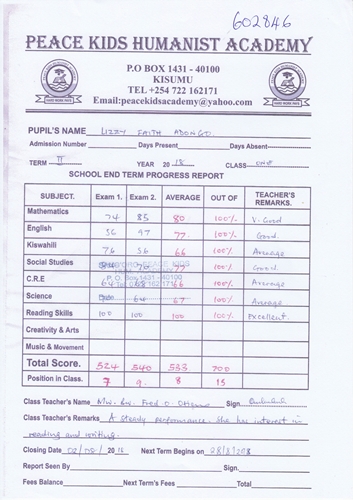 602846
PEACE KIDS HUMANIST ACADEMY
P.O BOX 1431 - 40100
KISUMU
TEL +254 722 162171
Email:peacekidsacademy@yahoo.com
PUPIL'S NAME LIZZY FAITH ADONGO
Admission Number Days Present Days Absent
TERM II YEAR 2018 CLASS ONE
SCHOOL END TERM PROGRESS REPORT
SUBJECT. Exam 1. Exam 2. AVERAGE OUT OF TEACHER'S REMARKS.
Mathematics 74 85 80 100% V. Good
English 56 97 77 100% Good
Kiswahili 76 56 66 100% Average
Social Studies 70 77 100% Good
C.R.E 64 68 66 100% Average
Science 64 67 100% Average
Reading Skills 100 100 100 100% Excellent
Creativity & Arts
Music & Movement
Total Score. 524 540 533 700
Position in Class. 7 9 8 15
P. O. Box 1431 - 40100
Class Teacher's Name Mw. Fred O. Otieno Sign.
Class Teacher's Remarks A steady performance. She has interest in
reading and writing.
Closing Date 02/08/2018 Next Term Begins on 28/8/2018
Report Seen By Sign.
Fees Balance Next Term's Fees Total